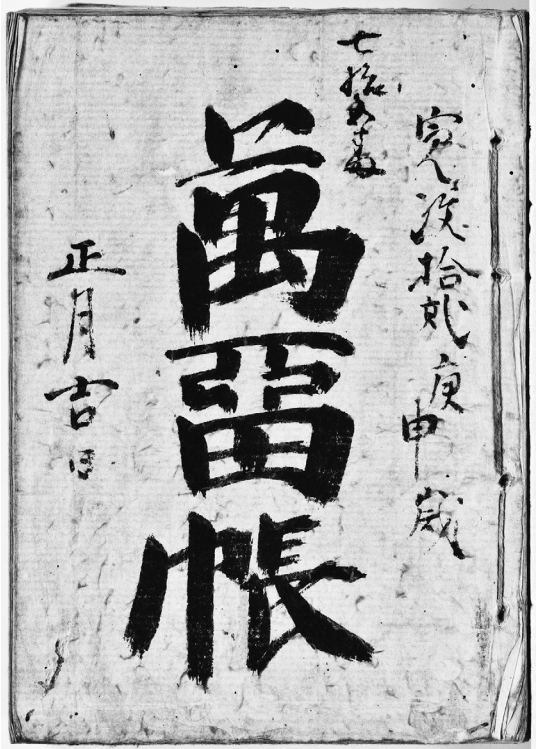 寛政拾弐庚申歳
七拾五番
萬畱帳
正月吉日